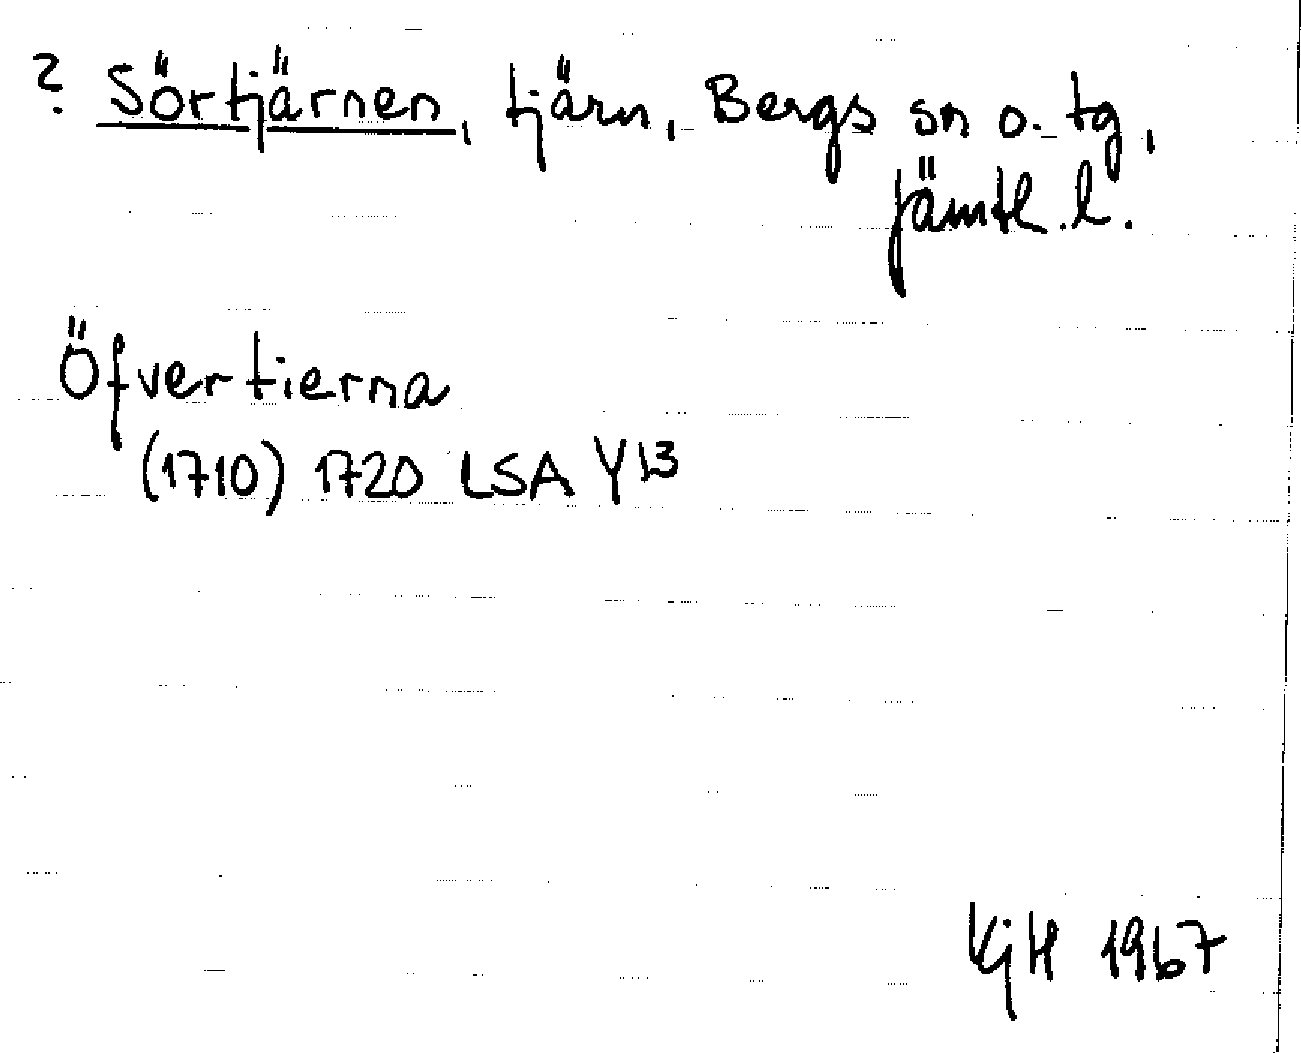 ? Sörtjärnen, tjärn, Bergs sn o. tg,
Jämtl. l.
Öfvertierna
(1710) 1720 LSA Y13
KjH 1967